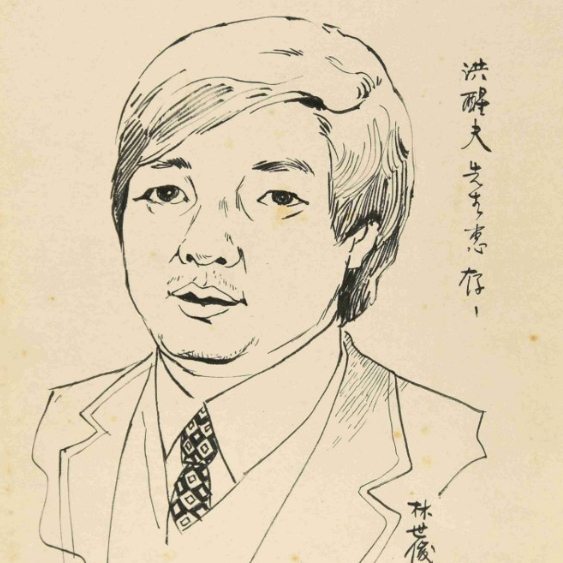 洪醒夫先生惠存、
林世俊